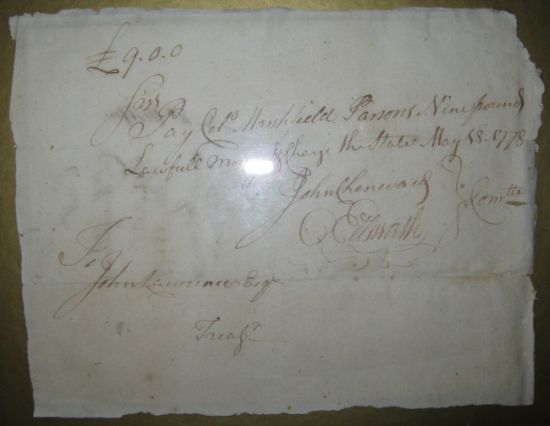 £9.0.0
Sir
Pay Colo Marshfield Parsons Nine pound
Lawfull Money & Charge the State May 18. 1778
John Chenward
Comtte
To
John Lawrence Esqr
Treasr